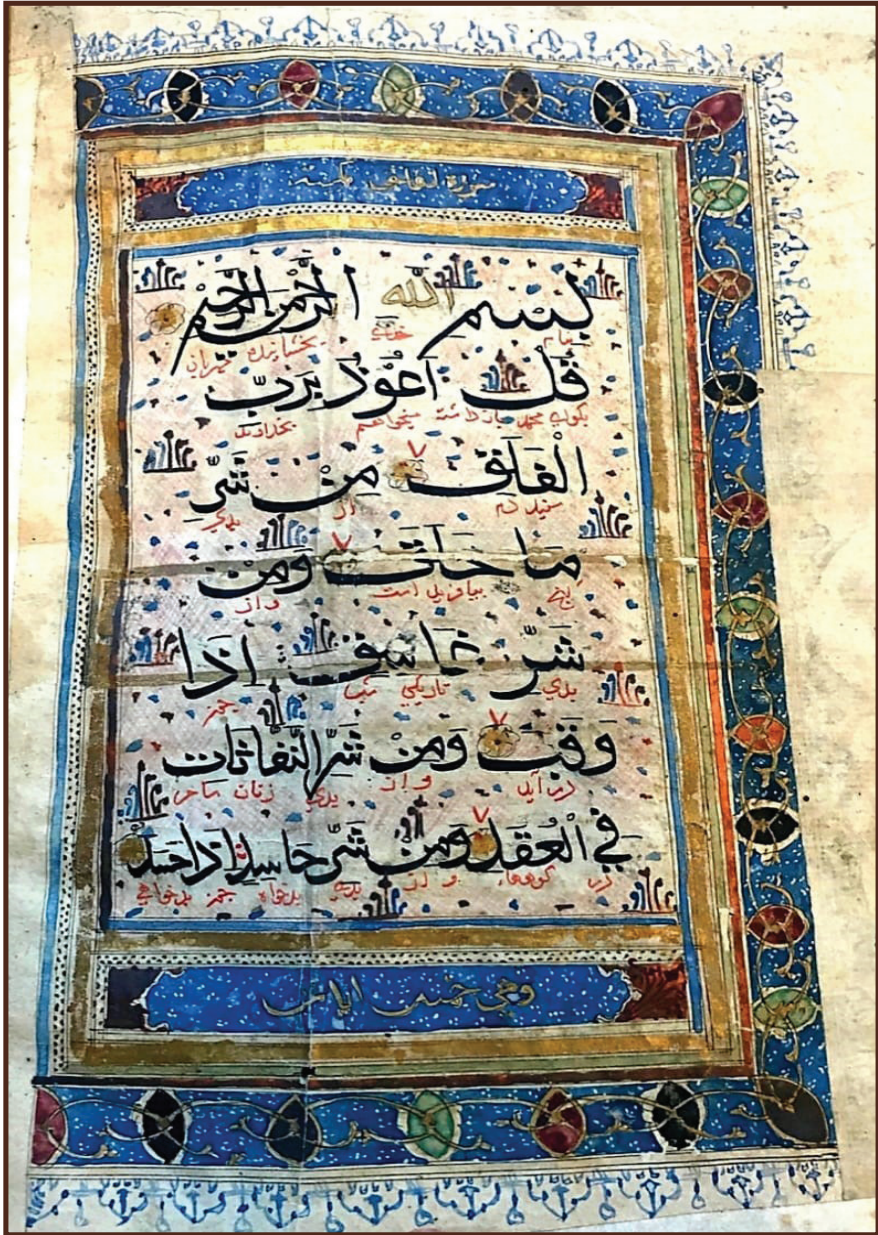 سورة الفلق
بسم الله الرحمن الرحيم
بنام خدای بخشاینده مهربان
قُل اَعُوذُ بِرَبِّ
بگو ای محمد بازداشت میخواهم بخداوند
الْفَلَقِ مِنْ شَرِّ
سپیده دم از بدي
مَا خَلَقَ وَمِنْ
بیافریده است و از
شَرِّ غَاسِقٍ اِذَا
بدي تاریکي شب چون
وَقَبَ وَمِنْ شَرِّ النَّفَّاثَات
در آید و از بدي زنان ساحر
فِي الْعُقَدِ وَمِنْ شَرِّ حَاسِدٍ اِذَا حَسَدَ
در گرهها و از بدي بدخواه چون بدخواهي
وهي خمس ايات